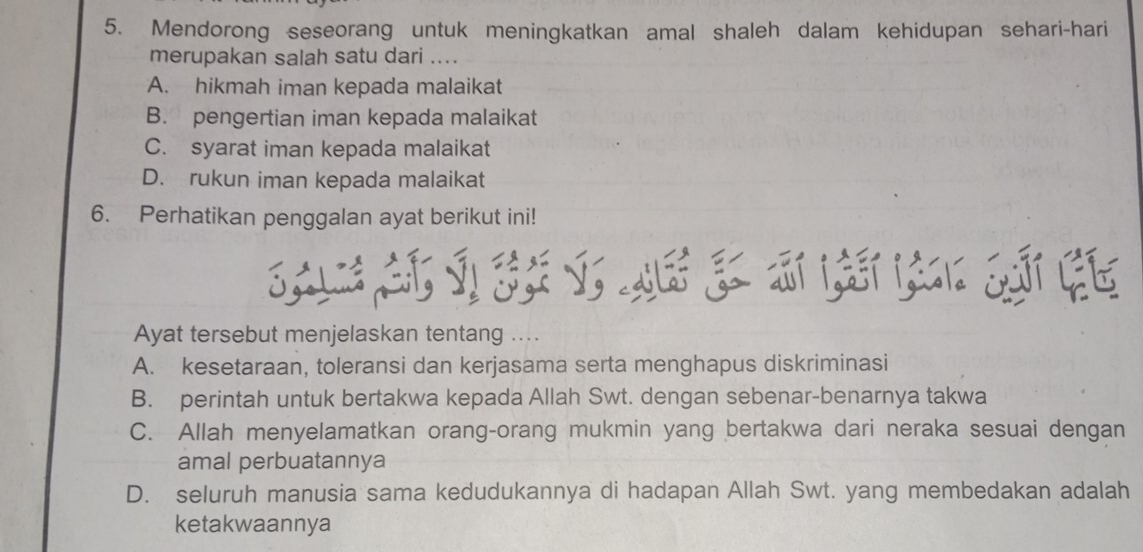 5. Mendorong seseorang untuk meningkatkan amal shaleh dalam kehidupan sehari-hari
merupakan salah satu dari ....
A. hikmah iman kepada malaikat
B. pengertian iman kepada malaikat
C. syarat iman kepada malaikat
D. rukun iman kepada malaikat
6. Perhatikan penggalan ayat berikut ini!
يَٰٓأَيُّهَا ٱلَّذِينَ ءَامَنُوا۟ ٱتَّقُوا۟ ٱللَّهَ حَقَّ تُقَاتِهِۦ وَلَا تَمُوتُنَّ إِلَّا وَأَنتُم مُّسْلِمُونَ
Ayat tersebut menjelaskan tentang ....
A. kesetaraan, toleransi dan kerjasama serta menghapus diskriminasi
B. perintah untuk bertakwa kepada Allah Swt. dengan sebenar-benarnya takwa
C. Allah menyelamatkan orang-orang mukmin yang bertakwa dari neraka sesuai dengan
amal perbuatannya
D. seluruh manusia sama kedudukannya di hadapan Allah Swt. yang membedakan adalah
ketakwaannya